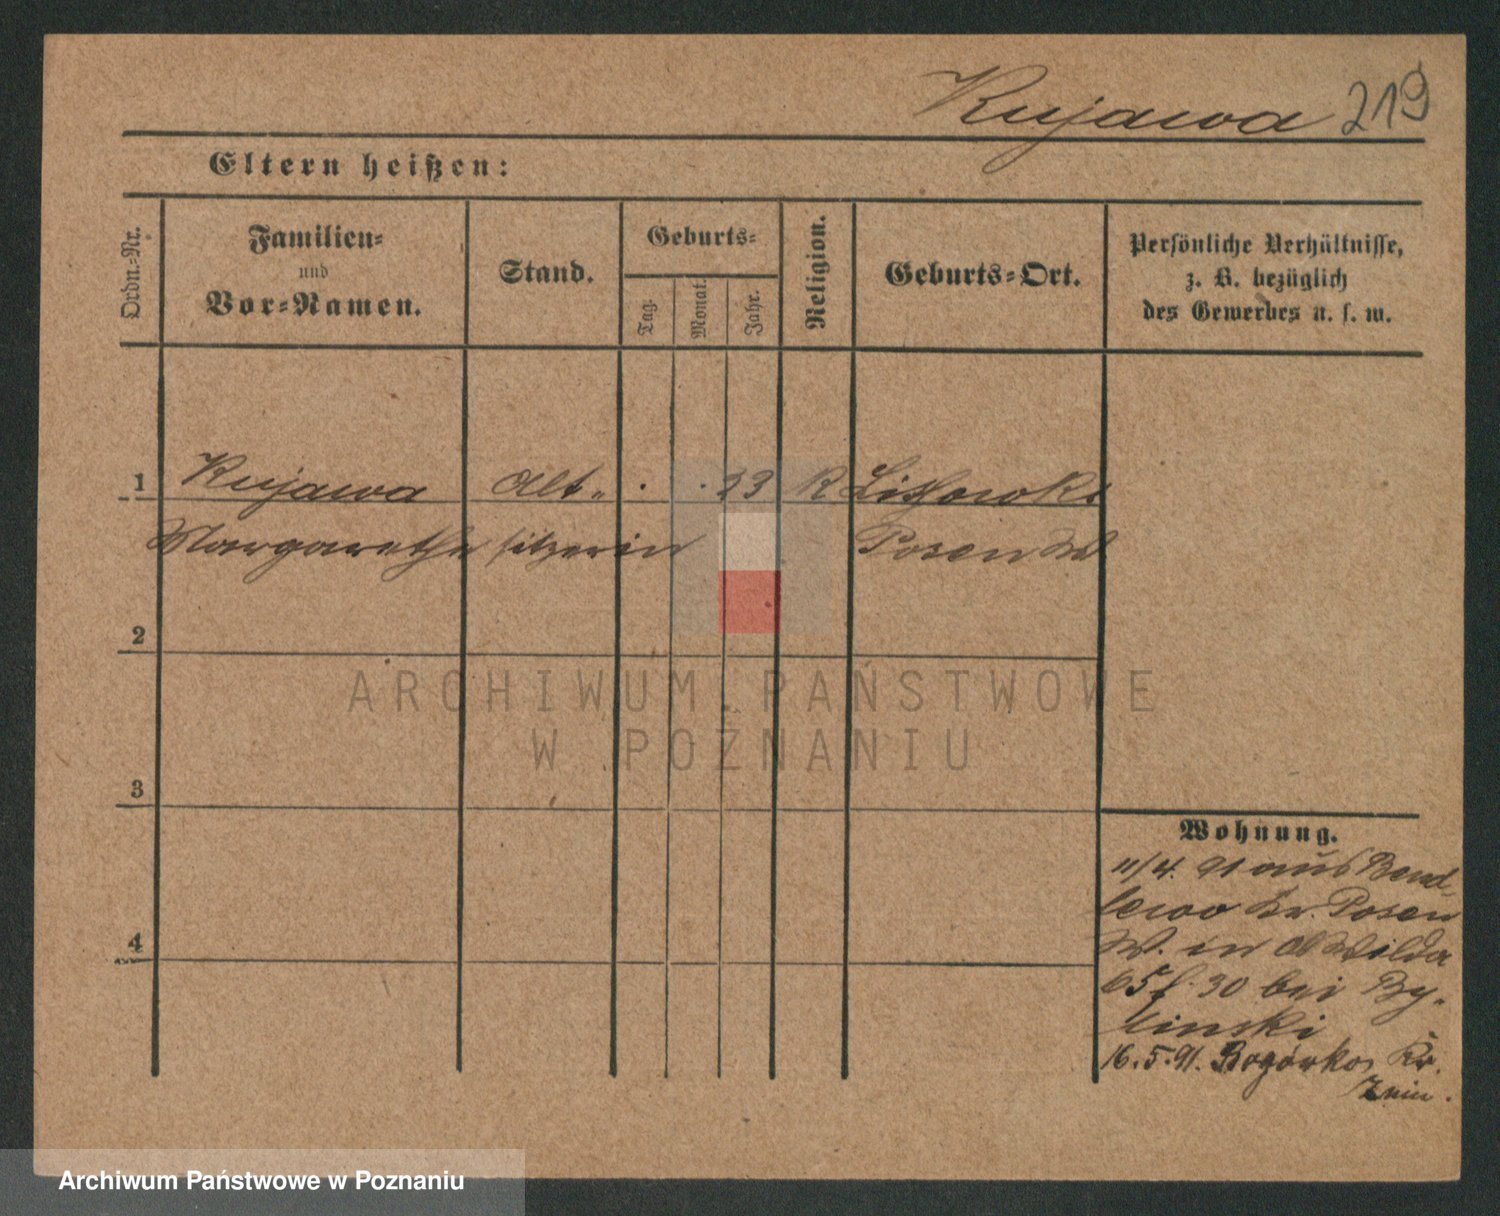 Kujawa 219
Eltern heißen:
Ordn.-Nr.
Familien-
und
Vor-Namen.
Stand.
Geburts-
Tag.
Monat.
Jahr.
Religion.
Geburts-Ort.
Persönliche Verhältnisse,
z. B. bezüglich
des Gewerbes u. s. w.
1 Kujawa Alt- . . 23 K
Margarethe sitzerin Posen W
2
3
4
Wohnung.
11/4. 91 aus Bend-
lewo Kr. Posen
W. in O Wilda
65 f. 30 bei By-
linski
16.5.91. Kr.
Znin.
ARCHIWUM PAŃSTWOWE
W POZNANIU
Archiwum Państwowe w Poznaniu